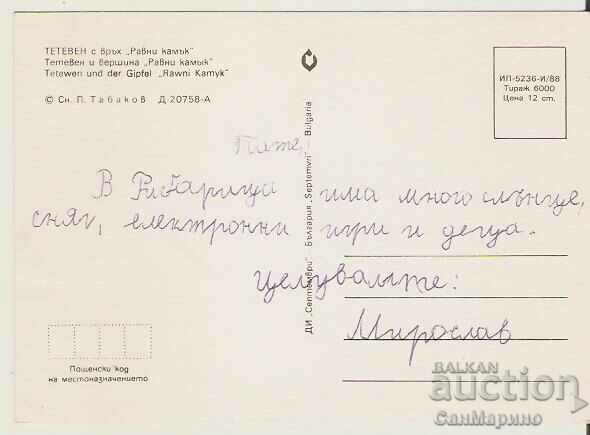 ТЕТЕВЕН с връх „Равни камък“
Тетевен и вершина „Равни камык“
Tetewen und der Gipfel „Rawni Kamyk“
© Сн. П. Табаков Д-20758-А
ИП-5236-И/88
Тираж 6000
Цена 12 ст.
ДИ „Септември“ - България „Septemvri“ - Bulgaria
В Рибарица има много слънце,
сняг, електронни игри и деца.
Целувалте:
Мирослав
Пощенски код
на местоназначението
BALKAN
auction
СанМарино